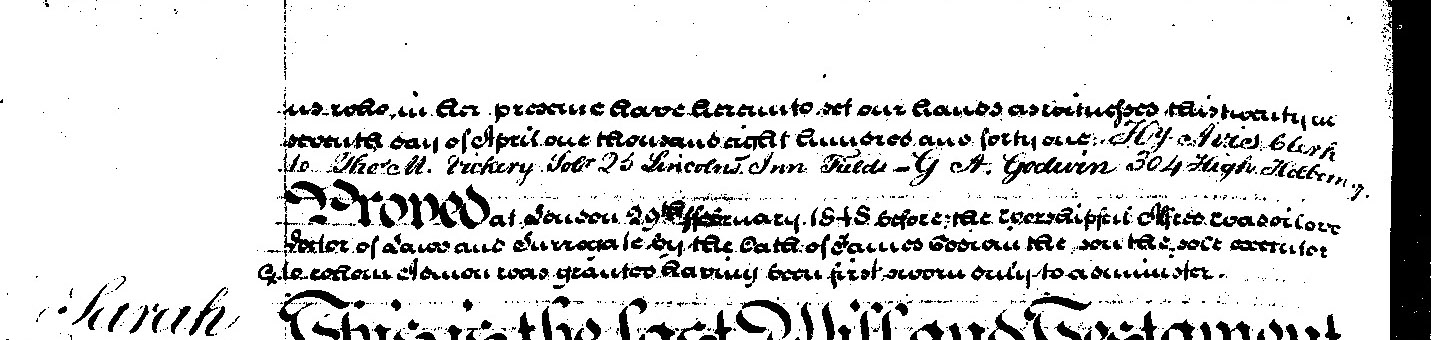 us who in her presence have hereunto set our hands as witnesses this twenty
seventh day of April one thousand eight hundred and forty one. Hy Avies Clerk
to Thos M. Vickery Solr 25 Lincolns Inn Fields - G A. Godwin 304 High Holborn
Proved at London 29th ffebruary 1848 before the Worshipful Alfred
Doctor of Laws and Surrogate by the Oath of James the son the sole executor
to whom Admon was granted having been first sworn duly to administer.
Sarah
This is the last Will and Testament